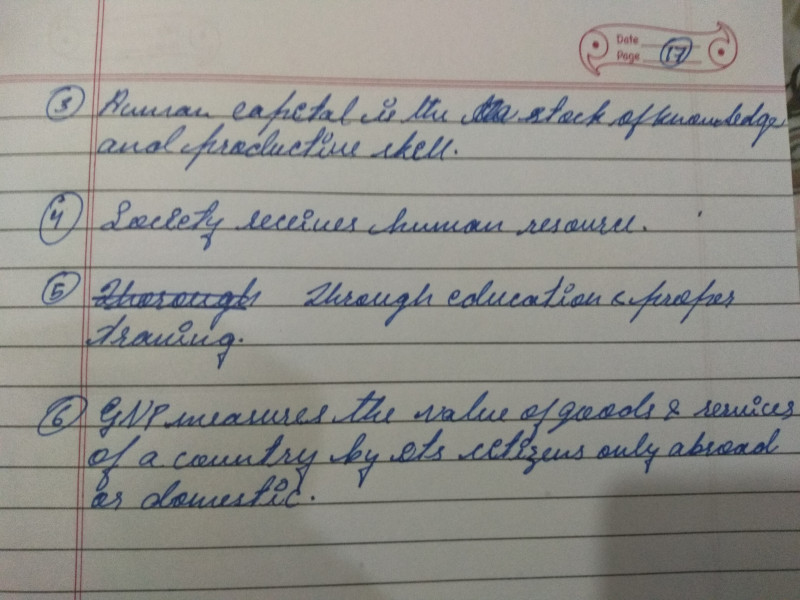 Date
Page 17
③ Human capital is the stock of knowledge
and productive skill.
④ Society receives human resource.
⑤ Thorough Through education & proper
traning.
⑥ GNP measures the value of goods & services
of a country by its citizens only abroad
or domestic.